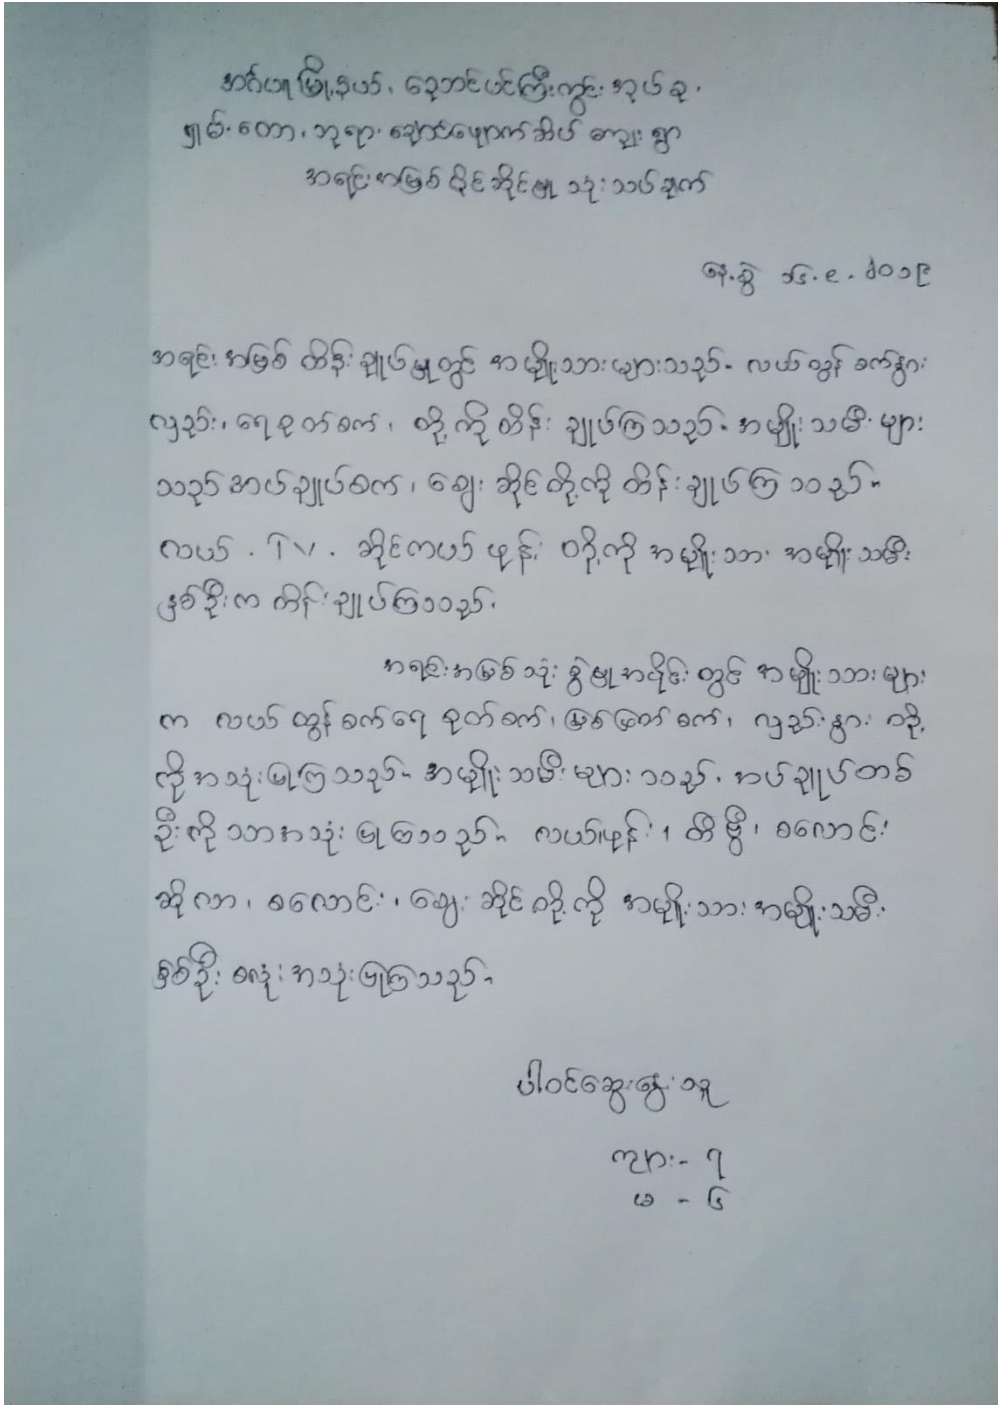 အင်္ဂပူမြို့နယ်၊ ညောင်ပင်ကြီးကွင်းအုပ်စု၊
ရှမ်းတော၊ဘုရားချောင်းဖျောက်ဆိပ် ကျေးရွာ
အရင်းအမြစ်ပိုင်ဆိုင်မှု သုံးသပ်ချက်
နေ့စွဲ ၁၆.၉.၂၀၁၉
အရင်းအမြစ် ထိန်းချုပ်မှုတွင် အမျိုးသားများသည်။ လယ်ထွန်စက်နွား
လှည်း၊ရေစုတ်စက်၊ တို့ကို ထိန်းချုပ်ကြသည်။ အမျိုးသမီးများ
သည်အပ်ချုပ်စက်၊ ဈေးဆိုင်တို့ကို ထိန်းချုပ်ကြသည်။
လယ်. TV. ဆိုင်ကယ် ဖုန်း တို့ကို အမျိုးသား အမျိုးသမီး
နှစ်ဦးက ထိန်းချုပ်ကြသည်.
အရင်းအမြစ်သုံးစွဲမှုအပိုင်းတွင် အမျိုးသားများ
က လယ်ထွန်စက်ရေစုတ်စက်၊ မြစ်မြက်စက်၊ လှည်းနွား တို့
ကိုအသုံးပြုကြသည်။ အမျိုးသမီးများသည်. အပ်ချုပ်တစ်
ဦးကိုသာအသုံးပြုကြသည်။ လယ်၊ဖုန်း၊ တီဗွီ၊ စလောင်း
ဆိုလာ၊ စလောင်း၊ဈေးဆိုင်တို့ကို အမျိုးသားအမျိုးသမီး
နှစ်ဦး စလုံးအသုံးပြုကြသည်။
ပါဝင်ဆွေးနွေးသူ
ကျား- ၇
မ - ၆